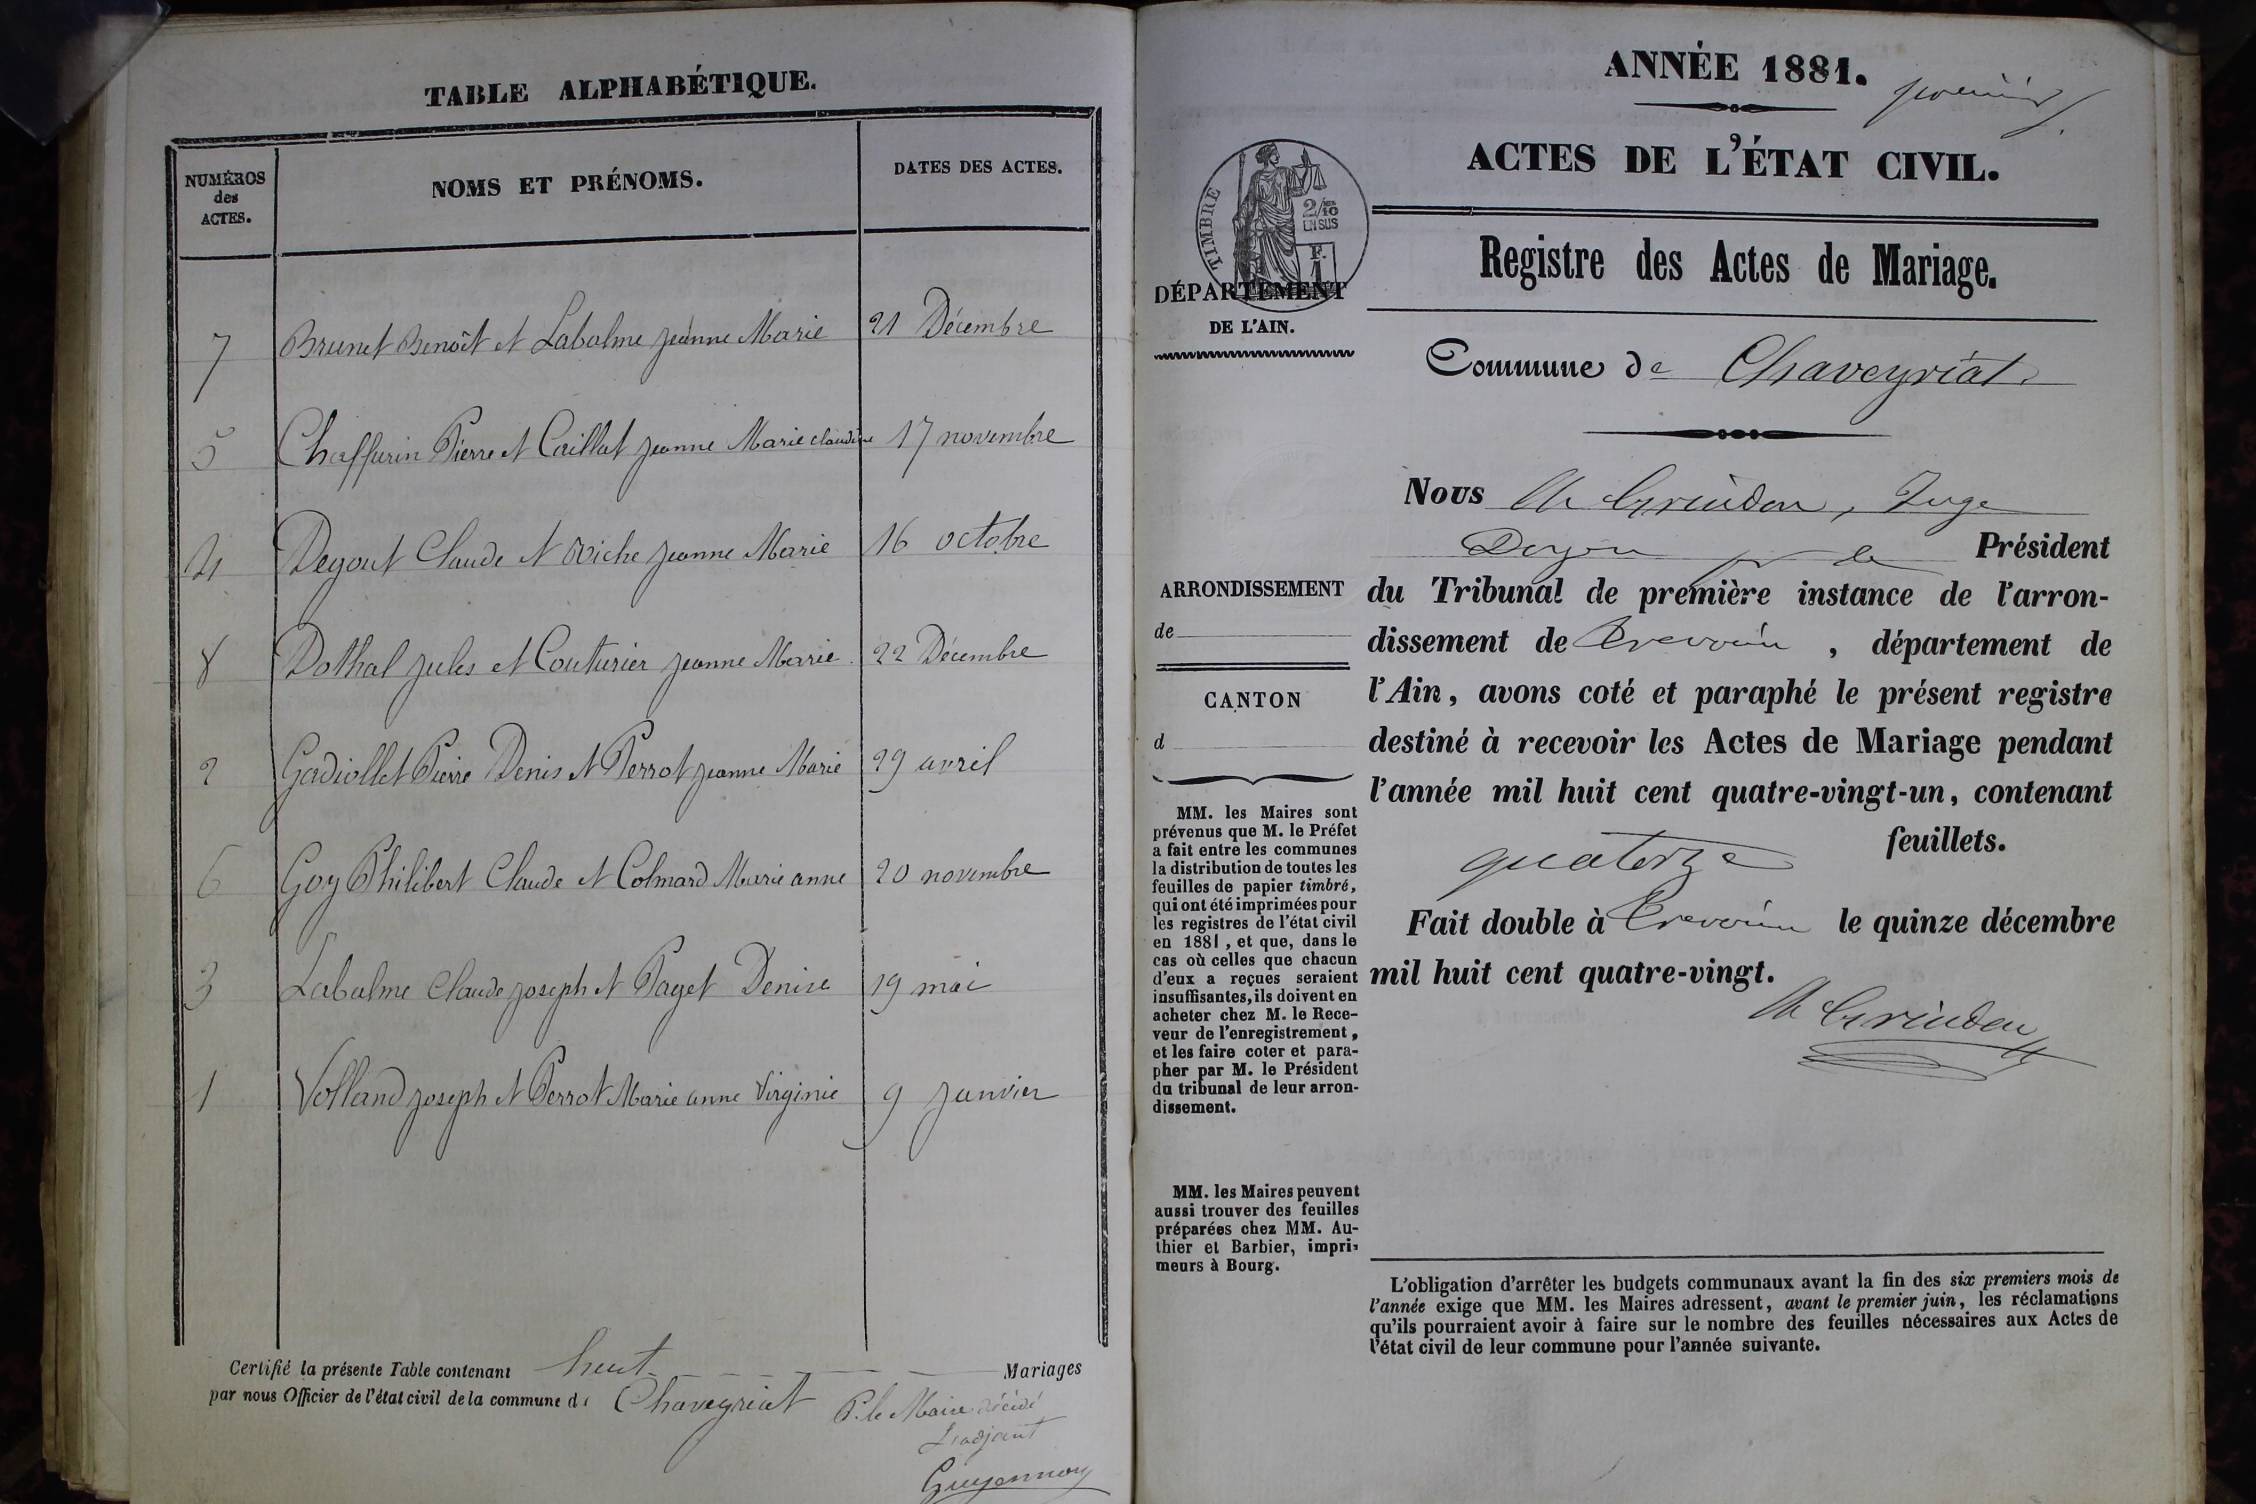 TABLE ALPHABÉTIQUE.
NUMÉROS
des
ACTES.
NOMS ET PRÉNOMS.
DATES DES ACTES.
7 Brunet Benoît et Labalme Jeanne Marie 21 Décembre
5 Chaffurin Pierre et Caillat Jeanne Marie Claudine 17 novembre
4 Degout Claude et Viche Jeanne Marie 16 octobre
8 Dothal Jules et Couturier Jeanne Marie 22 Décembre
2 Gadiollet Pierre Denis et Perrot Jeanne Marie 29 avril
6 Goy Philibert Claude et Colmard Marie anne 20 novembre
3 Labalme Claude Joseph et Paget Denise 19 mai
1 Volland Joseph et Perrot Marie anne Virginie 9 Janvier
Certifié la présente Table contenant huit Mariages
par nous Officier de l'état civil de la commune de Chaveyriat
P. le Maire décédé
L'adjoint
Guyennon
ANNÉE 1881.
premier
ACTES DE L'ÉTAT CIVIL.
Registre des Actes de Mariage.
TIMBRE
2/10
EN SUS
F.
1
DÉPARTEMENT
DE L'AIN.
Commune de Chaveyriat
ARRONDISSEMENT
de
CANTON
d
MM. les Maires sont
prévenus que M. le Préfet
a fait entre les communes
la distribution de toutes les
feuilles de papier timbré,
qui ont été imprimées pour
les registres de l'état civil
en 1881, et que, dans le
cas où celles que chacun
d'eux a reçues seraient
insuffisantes, ils doivent en
acheter chez M. le Rece-
veur de l'enregistrement,
et les faire coter et para-
pher par M. le Président
du tribunal de leur arron-
dissement.
MM. les Maires peuvent
aussi trouver des feuilles
préparées chez MM. Au-
thier et Barbier, impri-
meurs à Bourg.
Nous Ch Grindon, Juge
Doyen pr le Président
du Tribunal de première instance de l'arron-
dissement de Trevoux, département de
l'Ain, avons coté et paraphé le présent registre
destiné à recevoir les Actes de Mariage pendant
l'année mil huit cent quatre-vingt-un, contenant
quatorze feuillets.
Fait double à Trevoux le quinze décembre
mil huit cent quatre-vingt.
Ch Grindon
L'obligation d'arrêter les budgets communaux avant la fin des six premiers mois de
l'année exige que MM. les Maires adressent, avant le premier juin, les réclamations
qu'ils pourraient avoir à faire sur le nombre des feuilles nécessaires aux Actes de
l'état civil de leur commune pour l'année suivante.